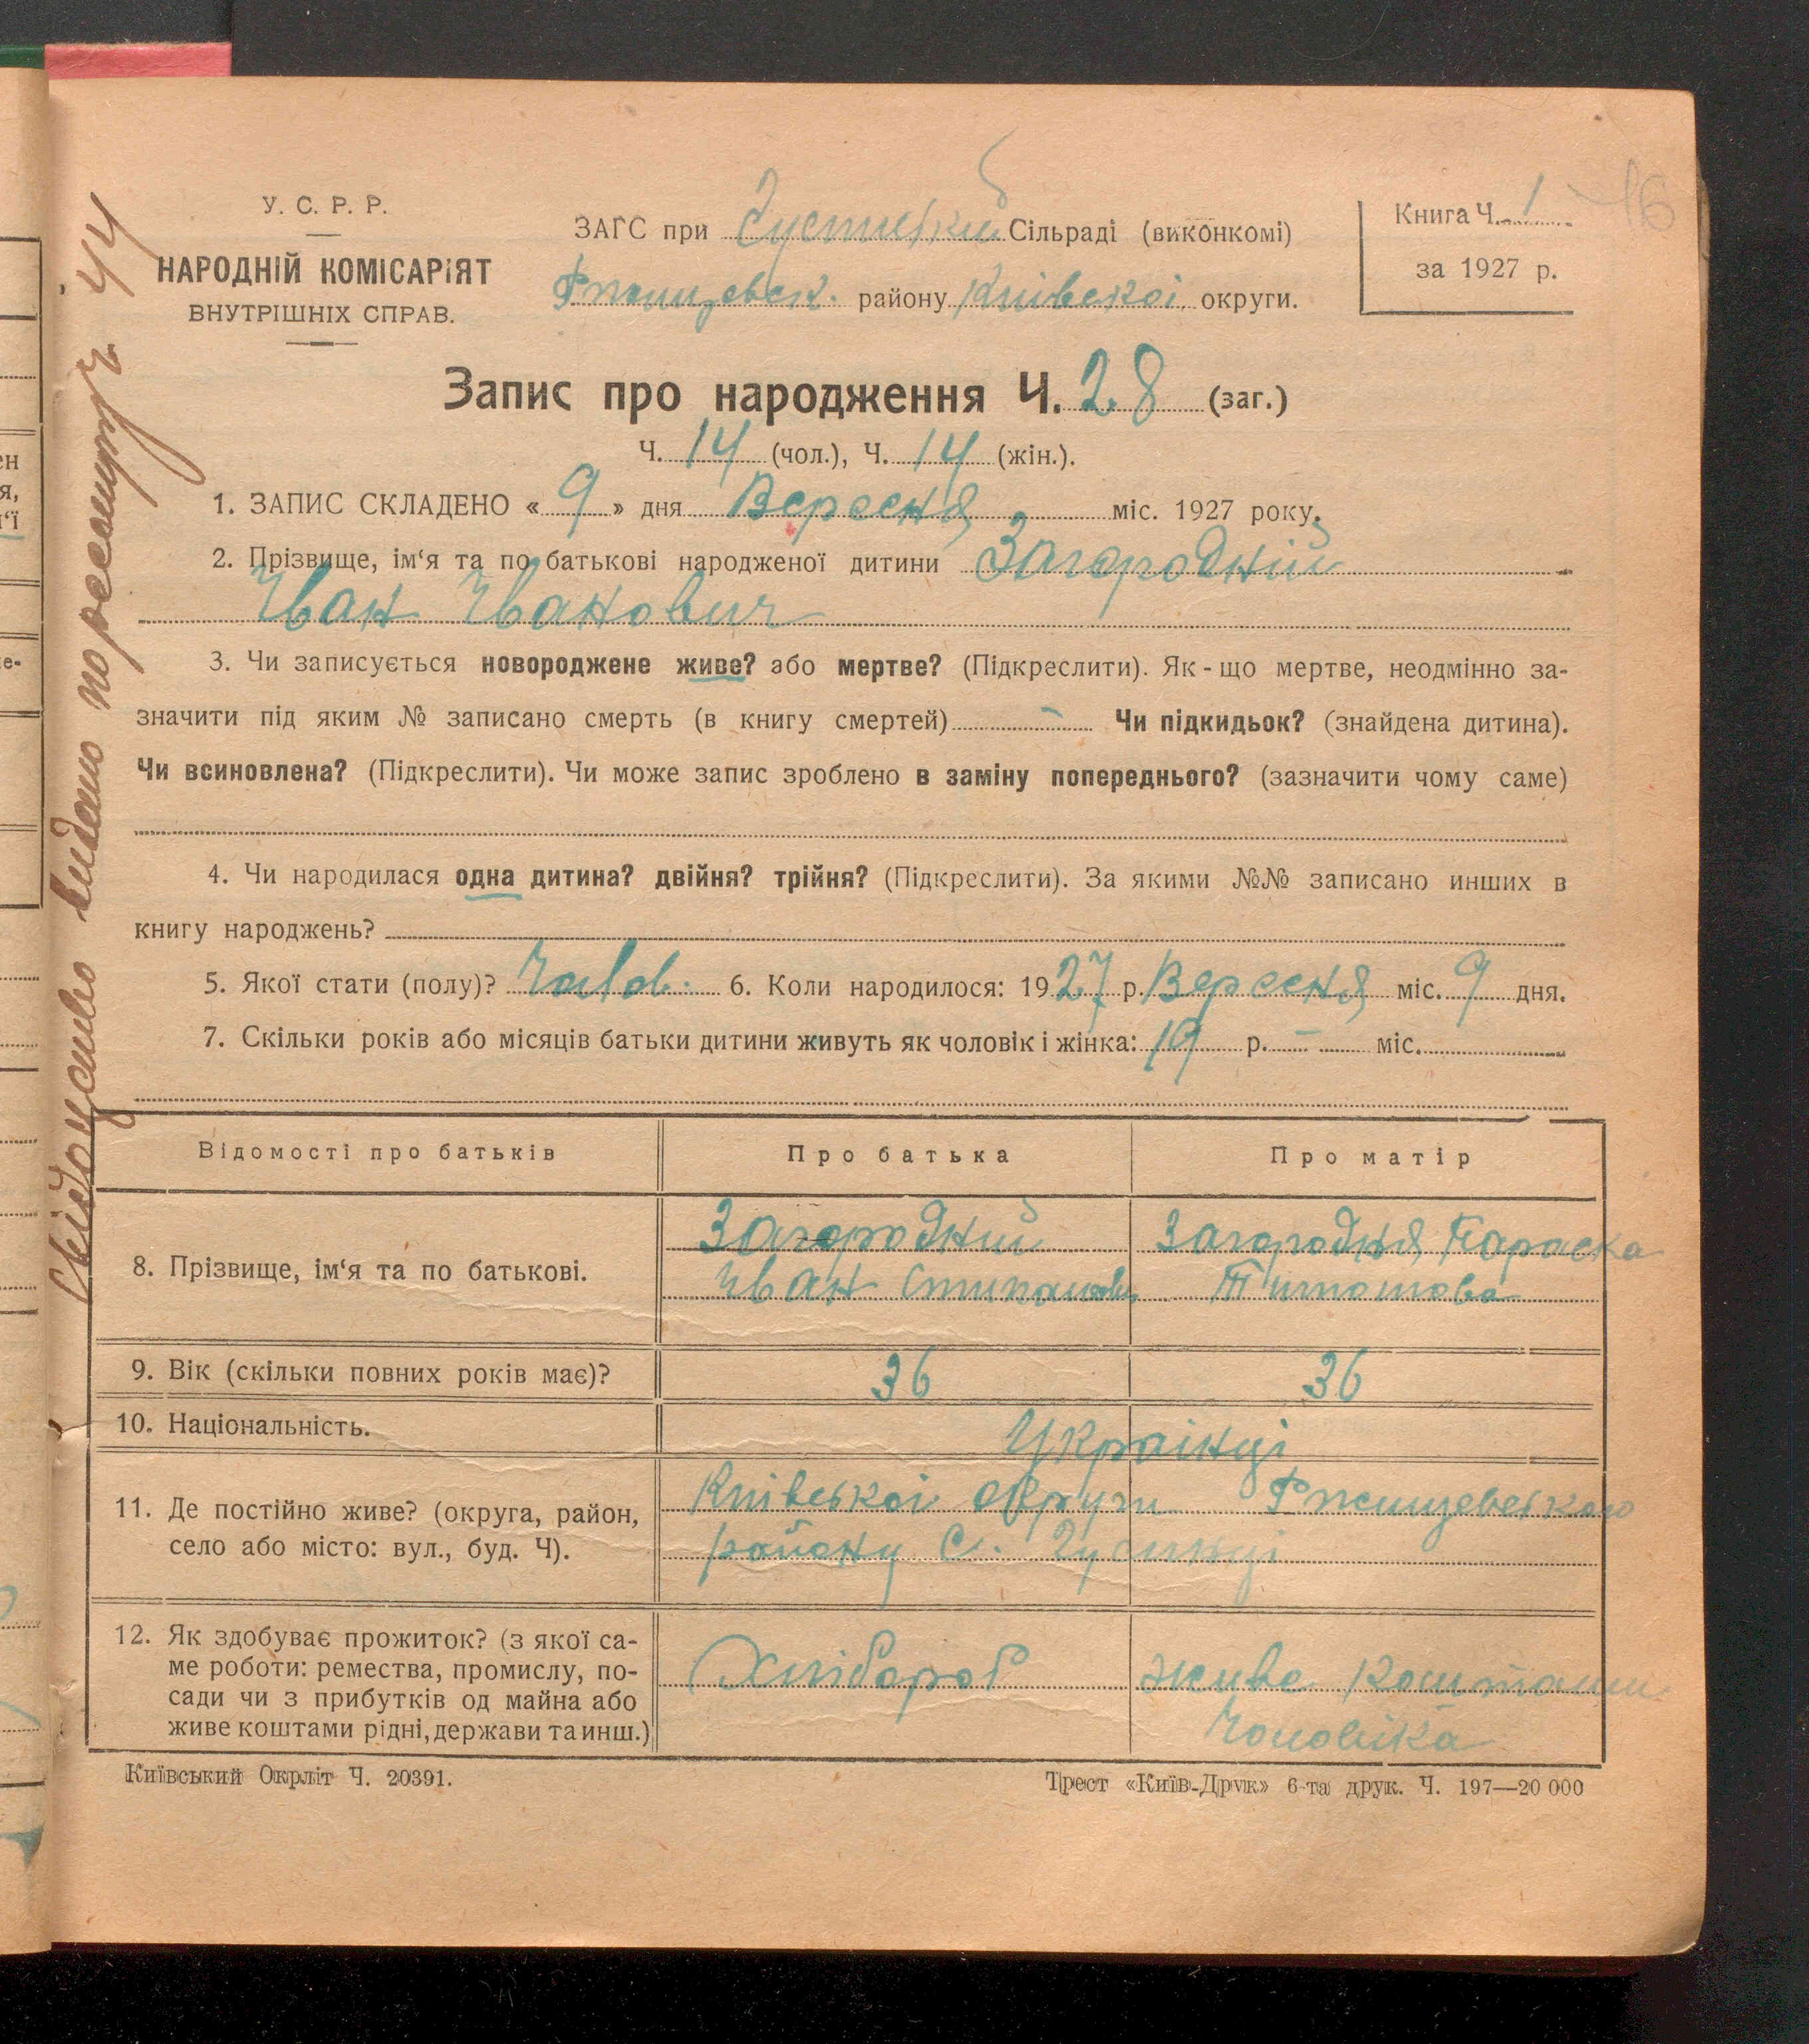 У. С. Р. Р.
НАРОДНІЙ КОМІСАРІЯТ
ВНУТРІШНІХ СПРАВ.
ЗАГС при Сільраді (виконкомі)
Ржищевськ. району Київської округи.
Книга Ч. 1
за 1927 р.
16
Запис про народження Ч. 28 (заг.)
Ч. 14 (чол.), Ч. 14 (жін.).
1. ЗАПИС СКЛАДЕНО « 9 » дня Вересня міс. 1927 року.
2. Прізвище, ім‘я та по батькові народженої дитини Загородній
Іван Іванович
3. Чи записується новороджене живе? або мертве? (Підкреслити). Як-що мертве, неодмінно за-
значити під яким № записано смерть (в книгу смертей) — Чи підкидьок? (знайдена дитина).
Чи всиновлена? (Підкреслити). Чи може запис зроблено в заміну попереднього? (зазначити чому саме)
4. Чи народилася одна дитина? двійня? трійня? (Підкреслити). За якими №№ записано инших в
книгу народжень?
5. Якої стати (полу)? Чолов. 6. Коли народилося: 1927 р. Вересня міс. 9 дня.
7. Скільки років або місяців батьки дитини живуть як чоловік і жінка: 19 р. — міс.
Відомості про батьків Про батька Про матір
8. Прізвище, ім‘я та по батькові.
Загородний
Іван
Загородня Параска
Титотова
9. Вік (скільки повних років має)? 36 36
10. Національність. Українці
11. Де постійно живе? (округа, район,
село або місто: вул., буд. Ч).
Київської округи Ржищевського
району с.
12. Як здобуває прожиток? (з якої са-
ме роботи: ремества, промислу, по-
сади чи з прибутків од майна або
живе коштами рідні, держави та инш.)
Хлібороб
живе коштами
чоловіка
Київський Окрліт Ч. 20391.
Трест «Київ-Друк» 6-та друк. Ч. 197—20 000
видано по реєстру 44